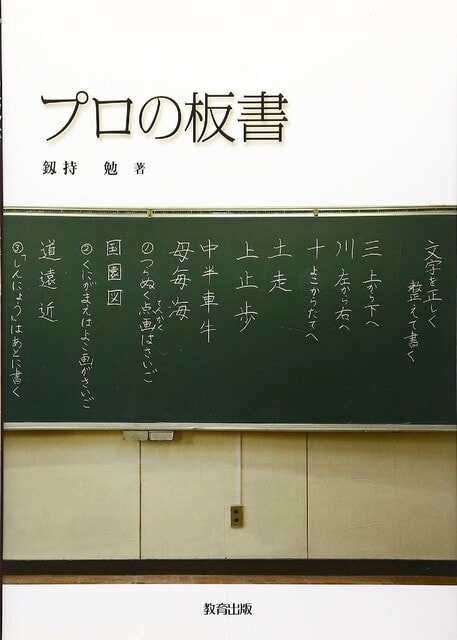 プロの板書
釼持 勉 著
文字を正しく
整えて書く
三 上から下へ
川 左から右へ
十 よこからたてへ
土走
上止歩
中半車牛
母毎海
①つらぬく点画はさいご
てんかく
国園図
②くにがまえはよこ画がさいご
道遠近
③「しんにょう」はあとに書く
教育出版